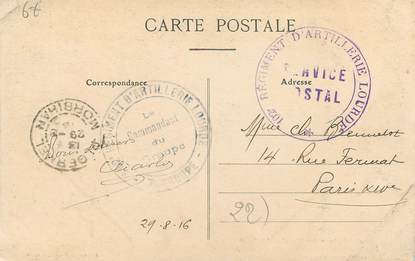 6€
CARTE POSTALE
Correspondance
Adresse
102e REGIMENT D'ARTILLERIE LOURDE
SERVICE
POSTAL
REGIMENT D'ARTILLERIE LOURDE
Le
Commandant
du
Groupe
MORBIHAN
29-8
Charles
Mme Ch.
14 Rue Fermat
Paris XIVe
29-8-16
22